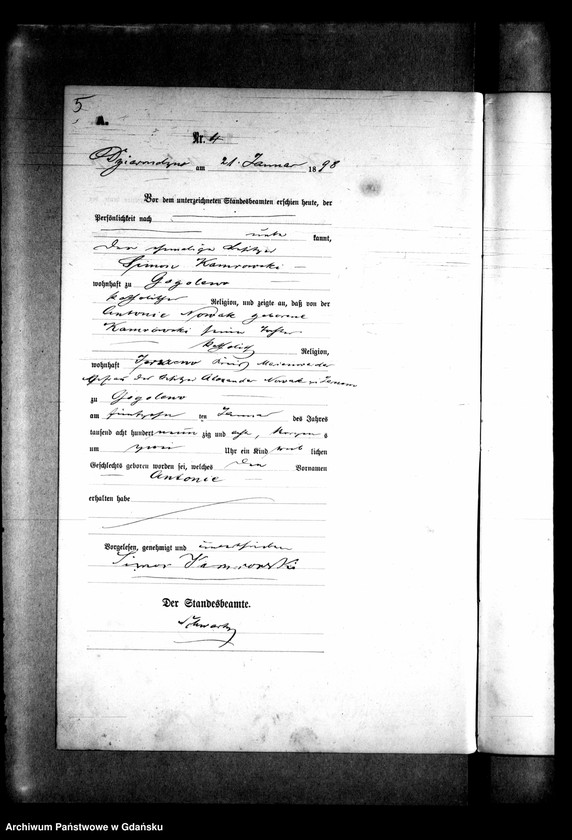 5
A.
Nr. 4
am 21. Januar 1898
Vor dem unterzeichneten Standesbeamten erschien heute, der
Persönlichkeit nach
kannt,
der ehemalige Besitzer
Simon Kamrowski
wohnhaft zu Gogolewo
katholischer Religion, und zeigte an, daß von der
Antonie Nowak geborene
Kamrowski seiner Tochter
katholisch
Religion,
wohnhaft Kreis Marienwerder
Ehefrau des Besitzer Alexander Nowak zu
zu Gogolewo
am fünfzehnten Januar des Jahres
tausend acht hundert neunzig und acht, Morgens
um zwei Uhr ein Kind weiblichen
Geschlechts geboren worden sei, welches den Vornamen
Antonie
erhalten habe
Vorgelesen, genehmigt und unterschrieben
Simon Kamrowski
Der Standesbeamte.
Schwartz
Archiwum Państwowe w Gdańsku